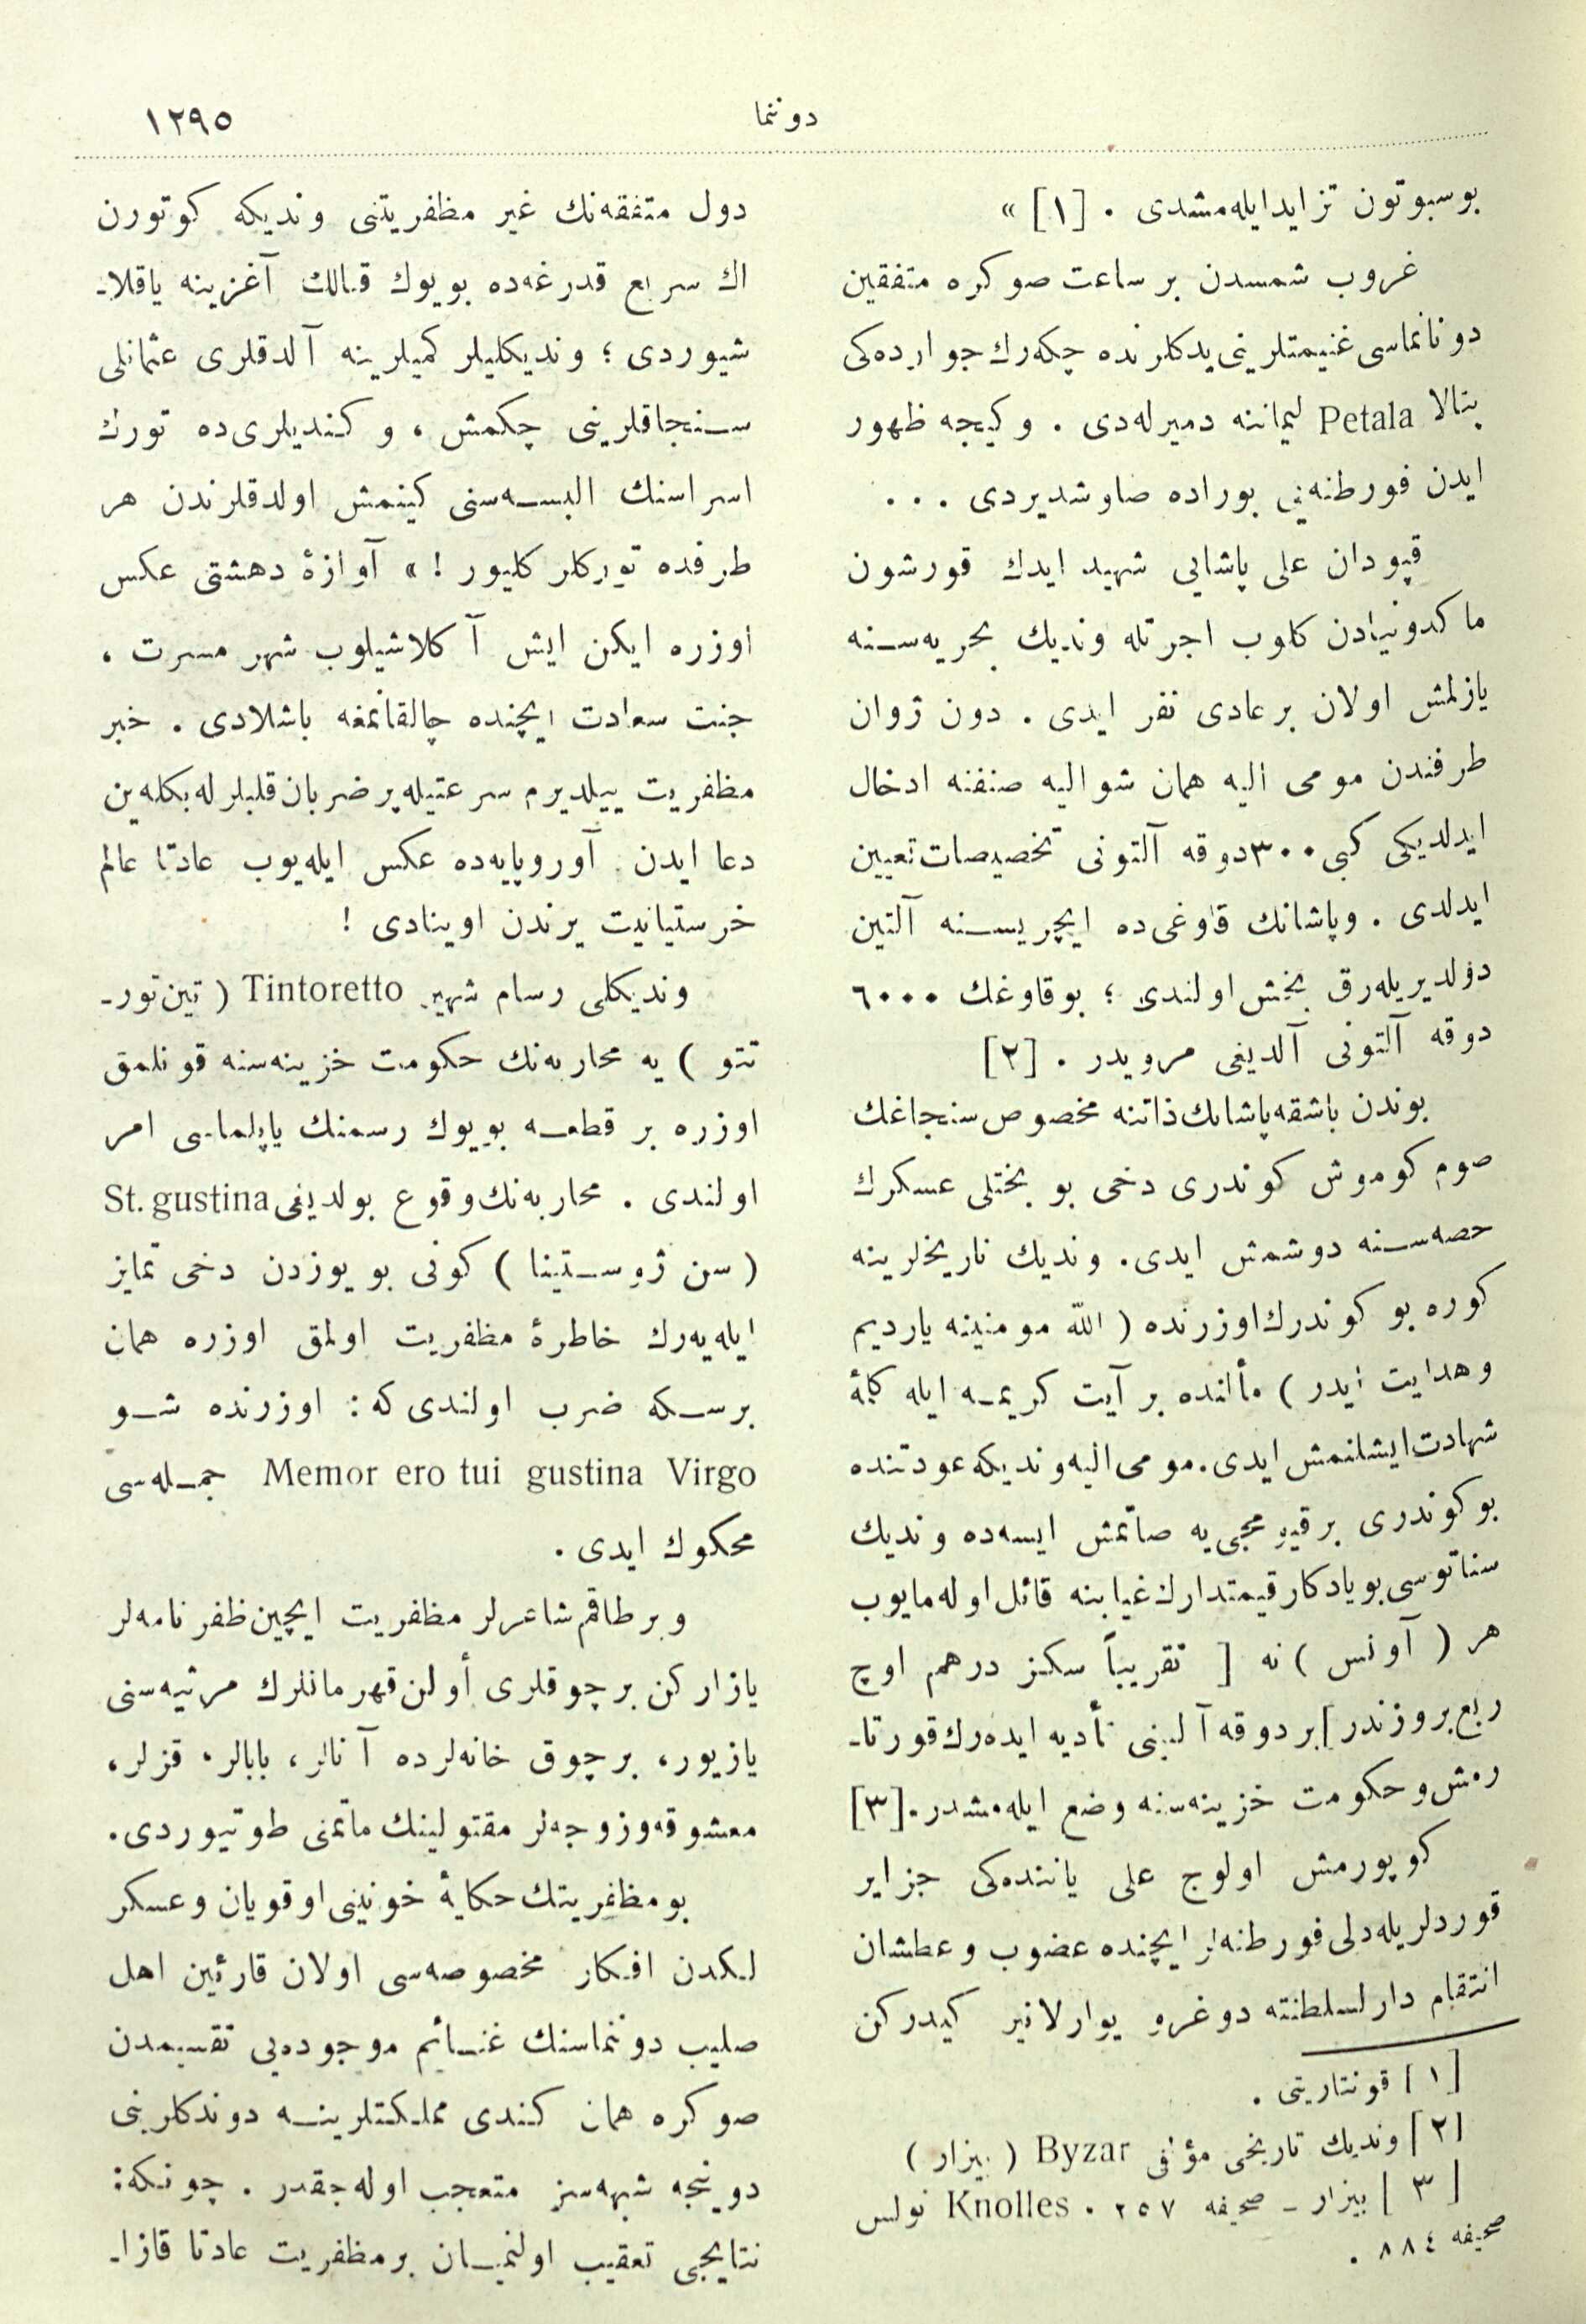 دوننما
١٢٩٥
بوسبوتون تزايد ايله‌مشدى . [١] »
غروب شمسدن بر ساعت صوكره متفقين
دونانماسى غنيمتلرينى يدكلرنده چكه‌رك جوارده‌كى
پتالا Petala ليماننه دميرله‌دى . و كيجه ظهور
ايدن فورطنه‌يى بوراده صاوشديردى . . .
قپودان على پاشايى شهيد ايدك قورشون
ماكدونيادن كلوب اجرتله ونديك بحريه‌سنه
يازلمش اولان برعادى نفر ايدى . دون ژوان
طرفندن مومى اليه همان شواليه صنفنه ادخال
ايدلديكى كبى ٣٠٠ دوقه آلتونى تخصيصات تعيين
ايدلدى . وپاشانك قاوغى‌ده ايچريسنه آلتين
دولديريله‌رق بخش اولندى ؛ بوقاوغك ٦٠٠٠
دوقه آلتونى آلديغى مرويدر . [٢]
بوندن باشقه پاشانك ذاتنه مخصوص سنجاغك
صوم كوموش كوندرى دخى بو بختلى عسكرك
حصه‌سنه دوشمش ايدى . ونديك تاريخلرينه
كوره بو كوندرك اوزرنده ( الله مومنينه يارديم
وهدايت ايدر ) مألنده بر آيت كريمه ايله كلهٔ
شهادت ايشلنمش ايدى . مومى اليه ونديكه عودتنده
بو كوندرى برقيومجى‌يه صاتمش ايسه‌ده ونديك
سناتوسى بو يادكار قيمتدارك غيابنه قائل اوله‌مايوب
هر ( آونس ) نه [ تقريباً سكز درهم اوچ
ربع بروزندر ] بر دوقه آلتينى تأديه ايده‌رك قورتا-
رمش وحكومت خزينه‌سنه وضع ايله‌مشدر . [٣]
كوپورمش اولوج على ياننده‌كى جزاير
قوردلريله دلى فورطنه‌لر ايچنده عضوب وعطشان
انتقام دارلسلطنته دوغرو يوارلانير كيدركن
[١] قونتارينى .
[٢] ونديك تاريخى مؤلفى Byzar ( بيزار )
[٣] بيزار - صحيفه ٢٥٧ . Knolles نولس
صحيفه ٨٨٤ .
دول متفقه‌نك غير مظفريتنى ونديكه كوتورن
اك سريع قدرغه‌ده بويوك قنالك آغزينه ياقلا-
شيوردى ؛ ونديكليلر كميلرينه آلدقلرى عثمانلى
سنجاقلرينى چكمش ، و كنديلرى‌ده تورك
اسراسنك البسه‌سنى كينمش اولدقلرندن هر
طرفده توركلر كليور ! » آوازهٔ دهشتى عكس
اوزره ايكن ايش آكلاشيلوب شهر مسرت ،
جنت سعادت ايچنده چالقانمغه باشلادى . خبر
مظفريت ييلديرم سرعتيله پرضربان قلبلرله بكله‌ين
دعا ايدن آوروپايه‌ده عكس ايله‌يوب عادتا عالم
خرستيانيت يرندن اوينادى !
ونديكلى رسام شهير Tintoretto ( تين تور-
تتو ) يه محاربه‌نك حكومت خزينه‌سنه قونلمق
اوزره بر قطعه بويوك رسمنك ياپلماسى امر
اولندى . محاربه‌نك وقوع بولديغى St. gustina
( سن ژوستينا ) كونى بو يوزدن دخى تمايز
ايله‌يه‌رك خاطرهٔ مظفريت اولمق اوزره همان
برسكه ضرب اولندى كه : اوزرنده شو
Memor ero tui gustina Virgo جمله‌سى
محكوك ايدى .
وبر طاقم شاعرلر مظفريت ايچين ظفرنامه‌لر
يازاركن برچوقلرى أولن قهرمانلرك مرثيه‌سنى
يازيور ، برچوق خانه‌لرده آنالر ، بابالر ، قزلر ،
معشوقه وزوجه‌لر مقتولينك ماتمنى طوتيوردى .
بو مظفريتك حكايهٔ خونينى اوقويان وعسكر
لكدن افكار مخصوصه‌سى اولان قارئين اهل
صليب دوننماسنك غنائم موجوده‌يى تقسيمدن
صوكره همان كندى مملكتلرينه دوندكلرينى
دوينجه شبهه‌سز متعجب اوله‌جقدر . چونكه :
نتايجى تعقيب اولنميان بر مظفريت عادتا قازا-